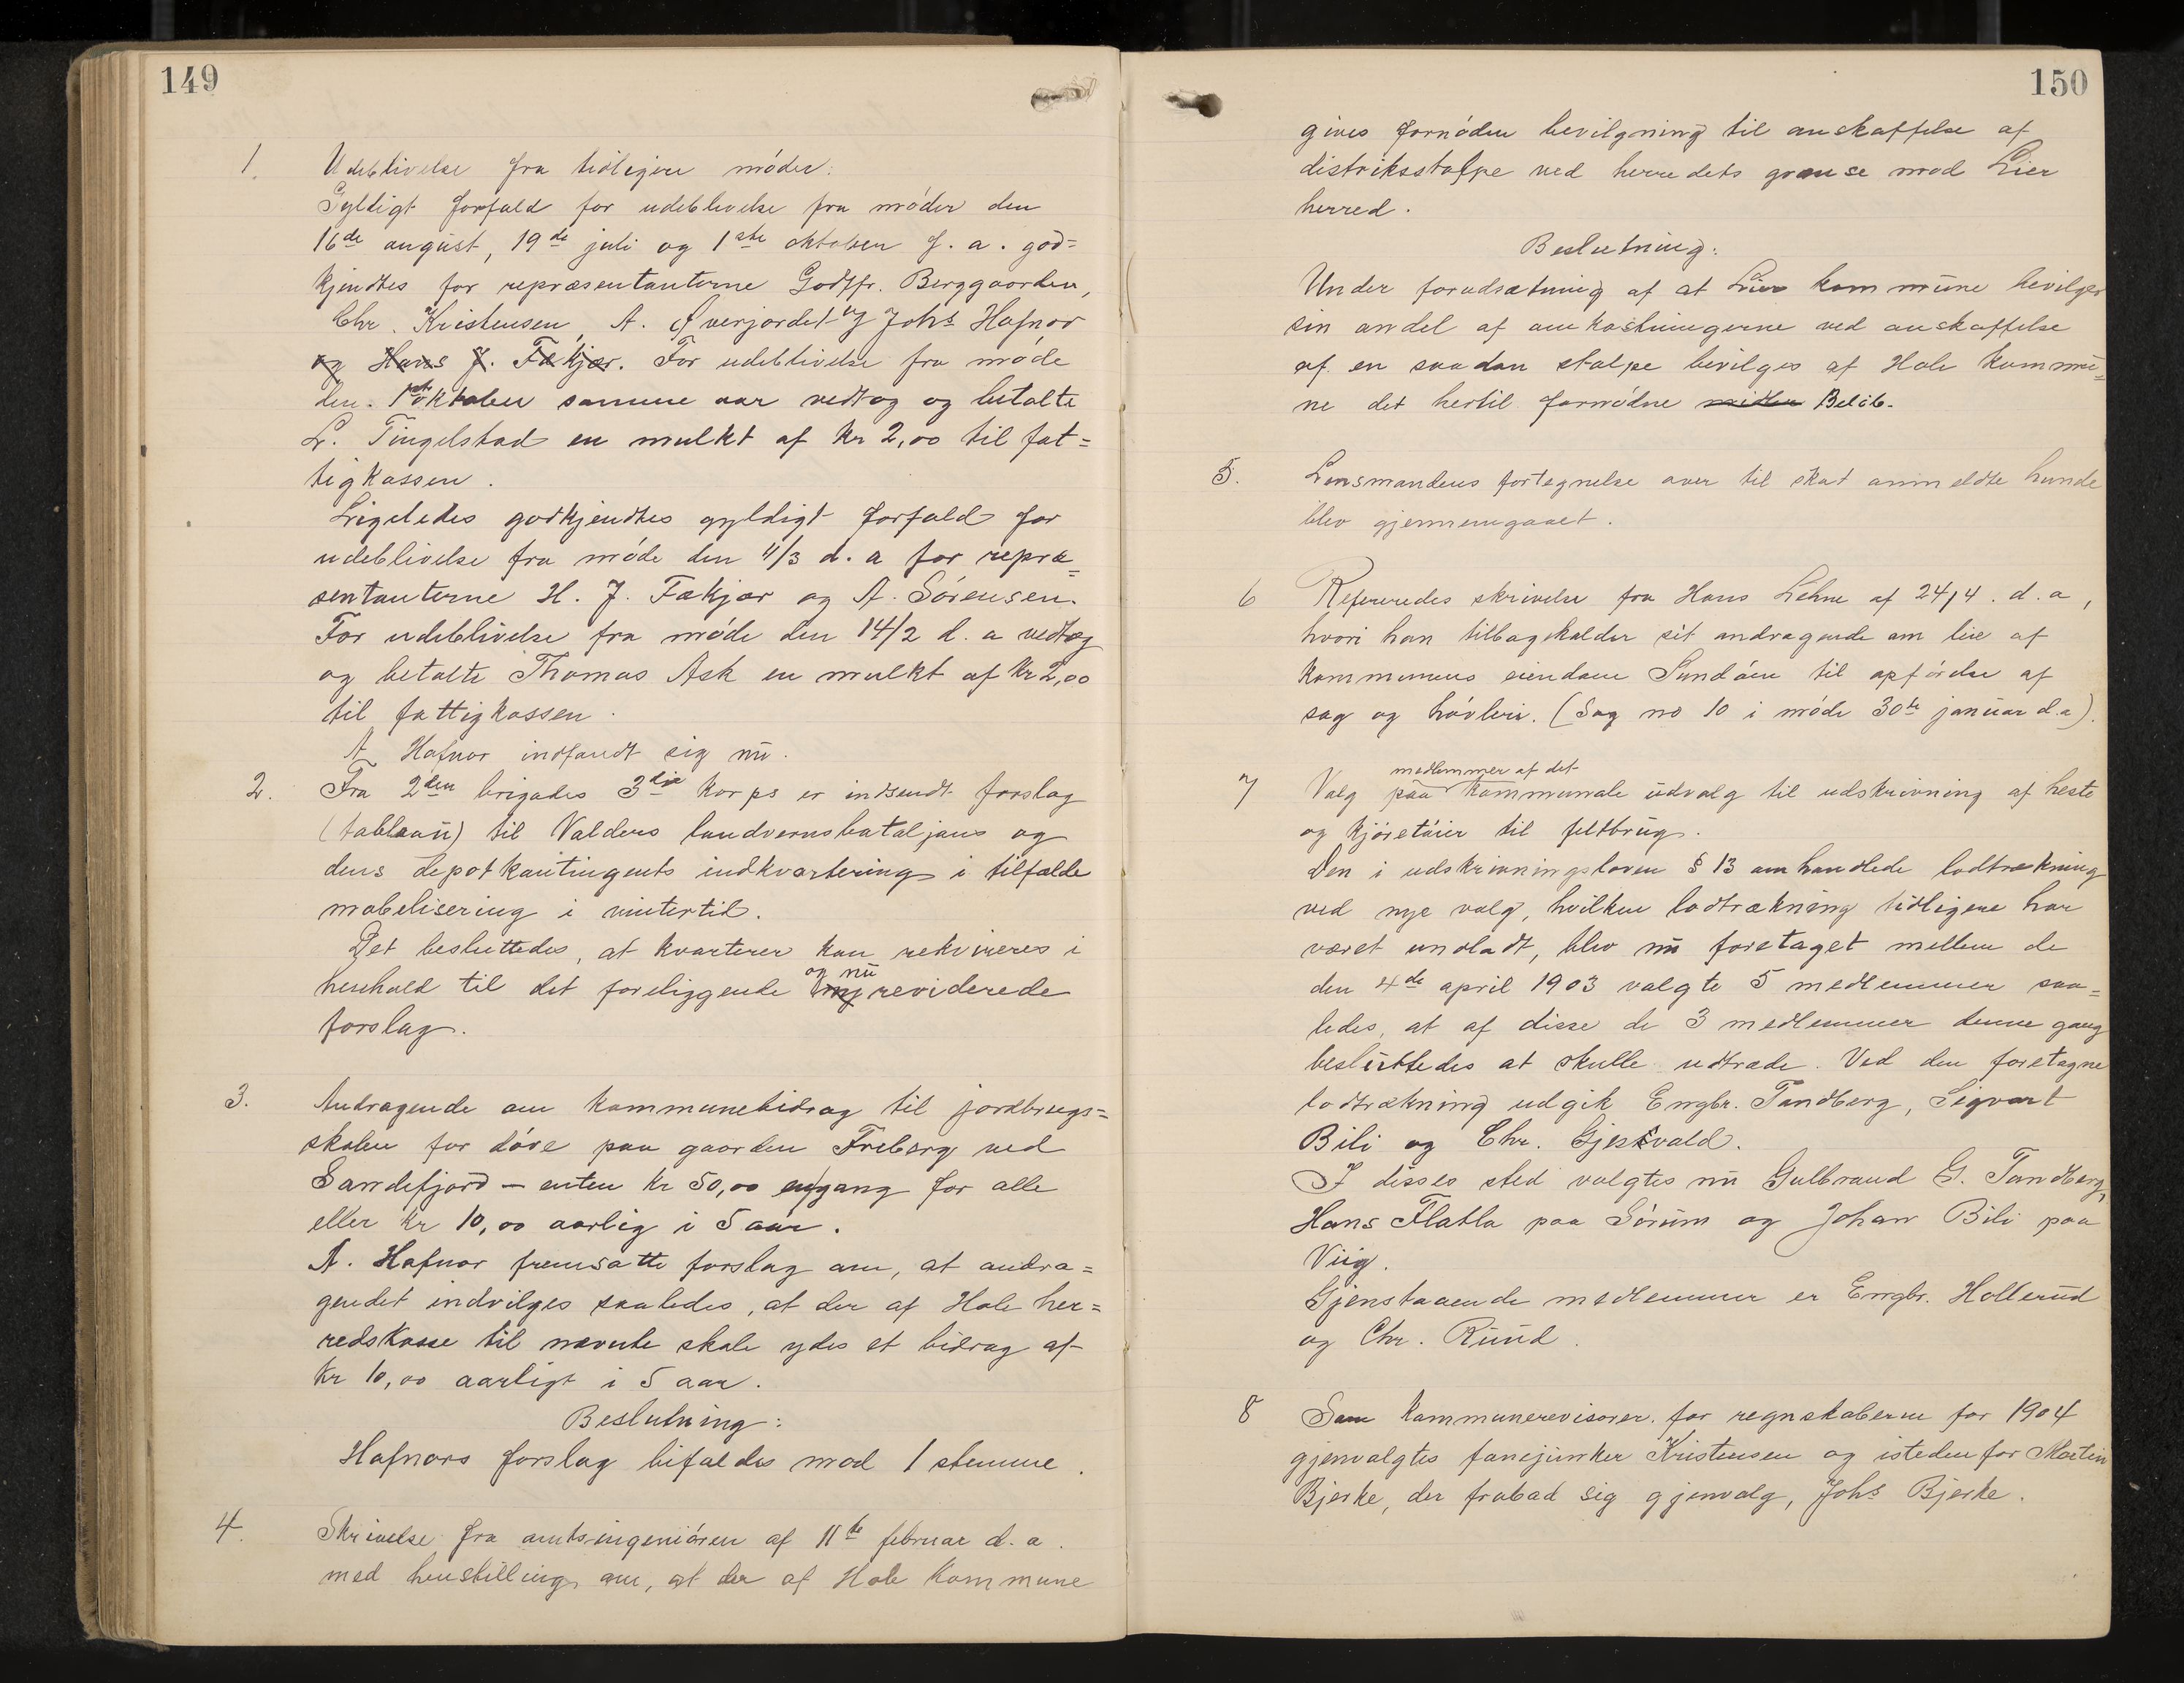 149
1. Udeblivelse fra tidligere møder:
Gyldigt forfald for udeblivelse fra møder den
16de august, 19de juli og 1ste oktober f. a. god=
kjendtes for repræsentanterne Godtfr. Berggaarden,
Chr. Kristensen, A. Averjordet og Johs Hafnor
og Hans J. Fækjær. For udeblivelse fra møde
den 1ste oktober samme aar vedtog og betalte
L. Tingelstad en mulkt af kr 2,00 til fat=
tigkassen.
Ligeledes godkjendtes gyldigt forfald for
udeblivelse fra møde den 11/3 d. a for repræ=
sentanterne H. J. Fækjær og A. Sørensen.
For udeblivelse fra møde den 14/2 d. a vedtog
og betalte Thomas Ask en mulkt af kr 2,00
til fattigkassen.
A Hafnor indfandt sig nu.
2. Fra 2den brigades 3die korps er indsendt forslag
(tableau) til Valders landvernsbataljons og
dens depotkontingents indkvartering i tilfælde
mobelisering i vintertid.
Det besluttedes, at kvarterer kan rekvireres i
henhold til det foreliggende og nu reviderede
forslag.
3. Andragende om kommunebidrag til jordbrugs=
skolen for døve paa gaarden Freberg ved
Sandefjord – enten kr 50,00 engang for alle
eller kr 10,00 aarlig i 5 aar.
A. Hafnor fremsatte forslag om, at andra=
gendet indvilges saaledes, at der af Hole her=
redskasse til nævnte skole ydes et bidrag af
kr 10,00 aarligt i 5 aar.
Beslutning:
Hafnors forslag bifaldes mod 1 stemme.
4. Skrivelse fra amtsingeniøren af 11te februar d. a.
med henstilling om, at der af Hole kommune
150
gives fornøden bevilgning til anskaffelse af
distriksstolpe ved herredets grænse mod Lier
herred.
Beslutning:
Under forudsætning af at Lier kommune bevilger
sin andel af omkostningerne ved anskaffelse
af en saadan stolpe bevilges af Hole kommu=
ne det hertil fornødne midler Beløb.
5. Lensmandens fortegnelse over til skat anmeldte hunde
blev gjennemgaaet.
6 Refereredes skrivelse fra Hans Lehne af 24/4. d. a,
hvori han tilbagekalder sit andragende om leie af
kommunens eiendom Sundøen til opførelse af
sag og høvleri. (Sag no 10 i møde 30te januar d.a).
7 Valg paa medlemmer af det kommunale udvalg til udskrivning af heste
og kjøretøier til feltbrug.
Den i udskrivningsloven § 13 omhandlede lodtrækning
ved nye valg, hvilken lodtrækning tidligere har
været undladt, blev nu foretaget mellem de
den 4de april 1903 valgte 5 medlemmer saa=
ledes, at af disse de 3 medlemmer denne gang
besluttedes at skulle udtræde. Ved den foretagne
lodtrækning udgik Engbr. Tandberg, Sigvart
Bili og Chr. Gjesvald.
I disses sted valgtes nu Gulbrand G. Tandberg,
Hans Flatla paa Sørum og Johan Bili paa
Viig.
Gjenstaaende medlemmer er Engbr. Hollerud
og Chr. Rund.
8 Som kommunerevisorer for regnskaberne for 1904
gjenvalgtes fanejunker Kristensen og istedenfor Martin
Bjerke, der frabad sig gjenvalg, Johs Bjerke.